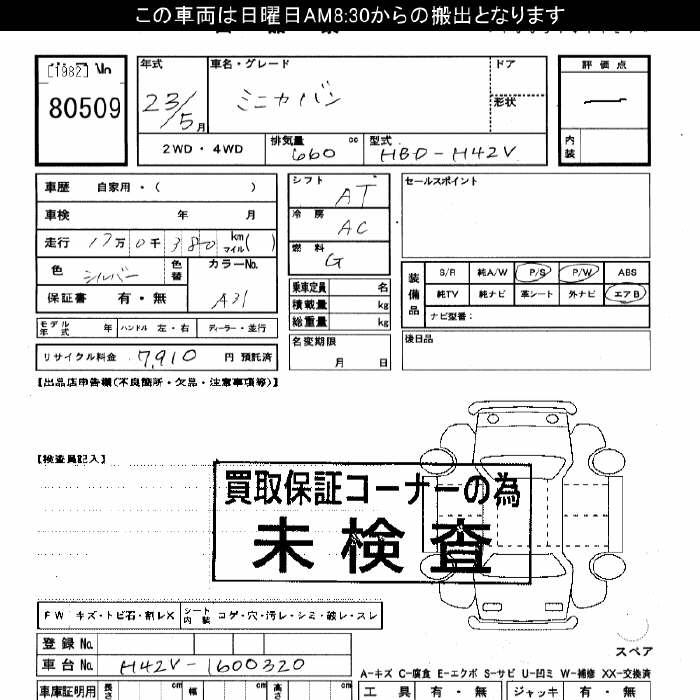 この車両は日曜日AM8:30からの搬出となります
[1982]
80509
年式
車名・グレード
ドア
評価点
23/5月
ミニカバン
形状
—
2WD・4WD
排気量 660 cc
型式 HBD-H42V
内装
車歴 自家用・( )
シフト AT
セールスポイント
車検 年 月
冷房 AC
走行 17万0千380 km マイル( )
燃料 G
色 シルバー
色替
カラーNo. A31
装備品
S/R 純A/W P/S P/W ABS
純TV 純ナビ 革シート 外ナビ エアB
ナビ型番:
保証書 有・無
乗車定員 名
積載量 kg
総重量 kg
モデル年式 年 ハンドル 左・右 ディーラー・並行
名変期限 月 日
後日品
リサイクル料金 7,910 円 預託済
【出品店申告欄(不良箇所・欠品・注意事項等)】
【検査員記入】
買取保証コーナーの為
未検査
FW キズ・トビ石・割レX シート内装 コゲ・穴・汚レ・シミ・破レ・スレ
登録No.
スペア
車台No. H42V-1600320
A-キズ C-腐食 E-エクボ S-サビ U-凹ミ W-補修 XX-交換済
車庫証明用 長さ cm 幅 cm 高さ cm
工具 有・無 ジャッキ 有・無